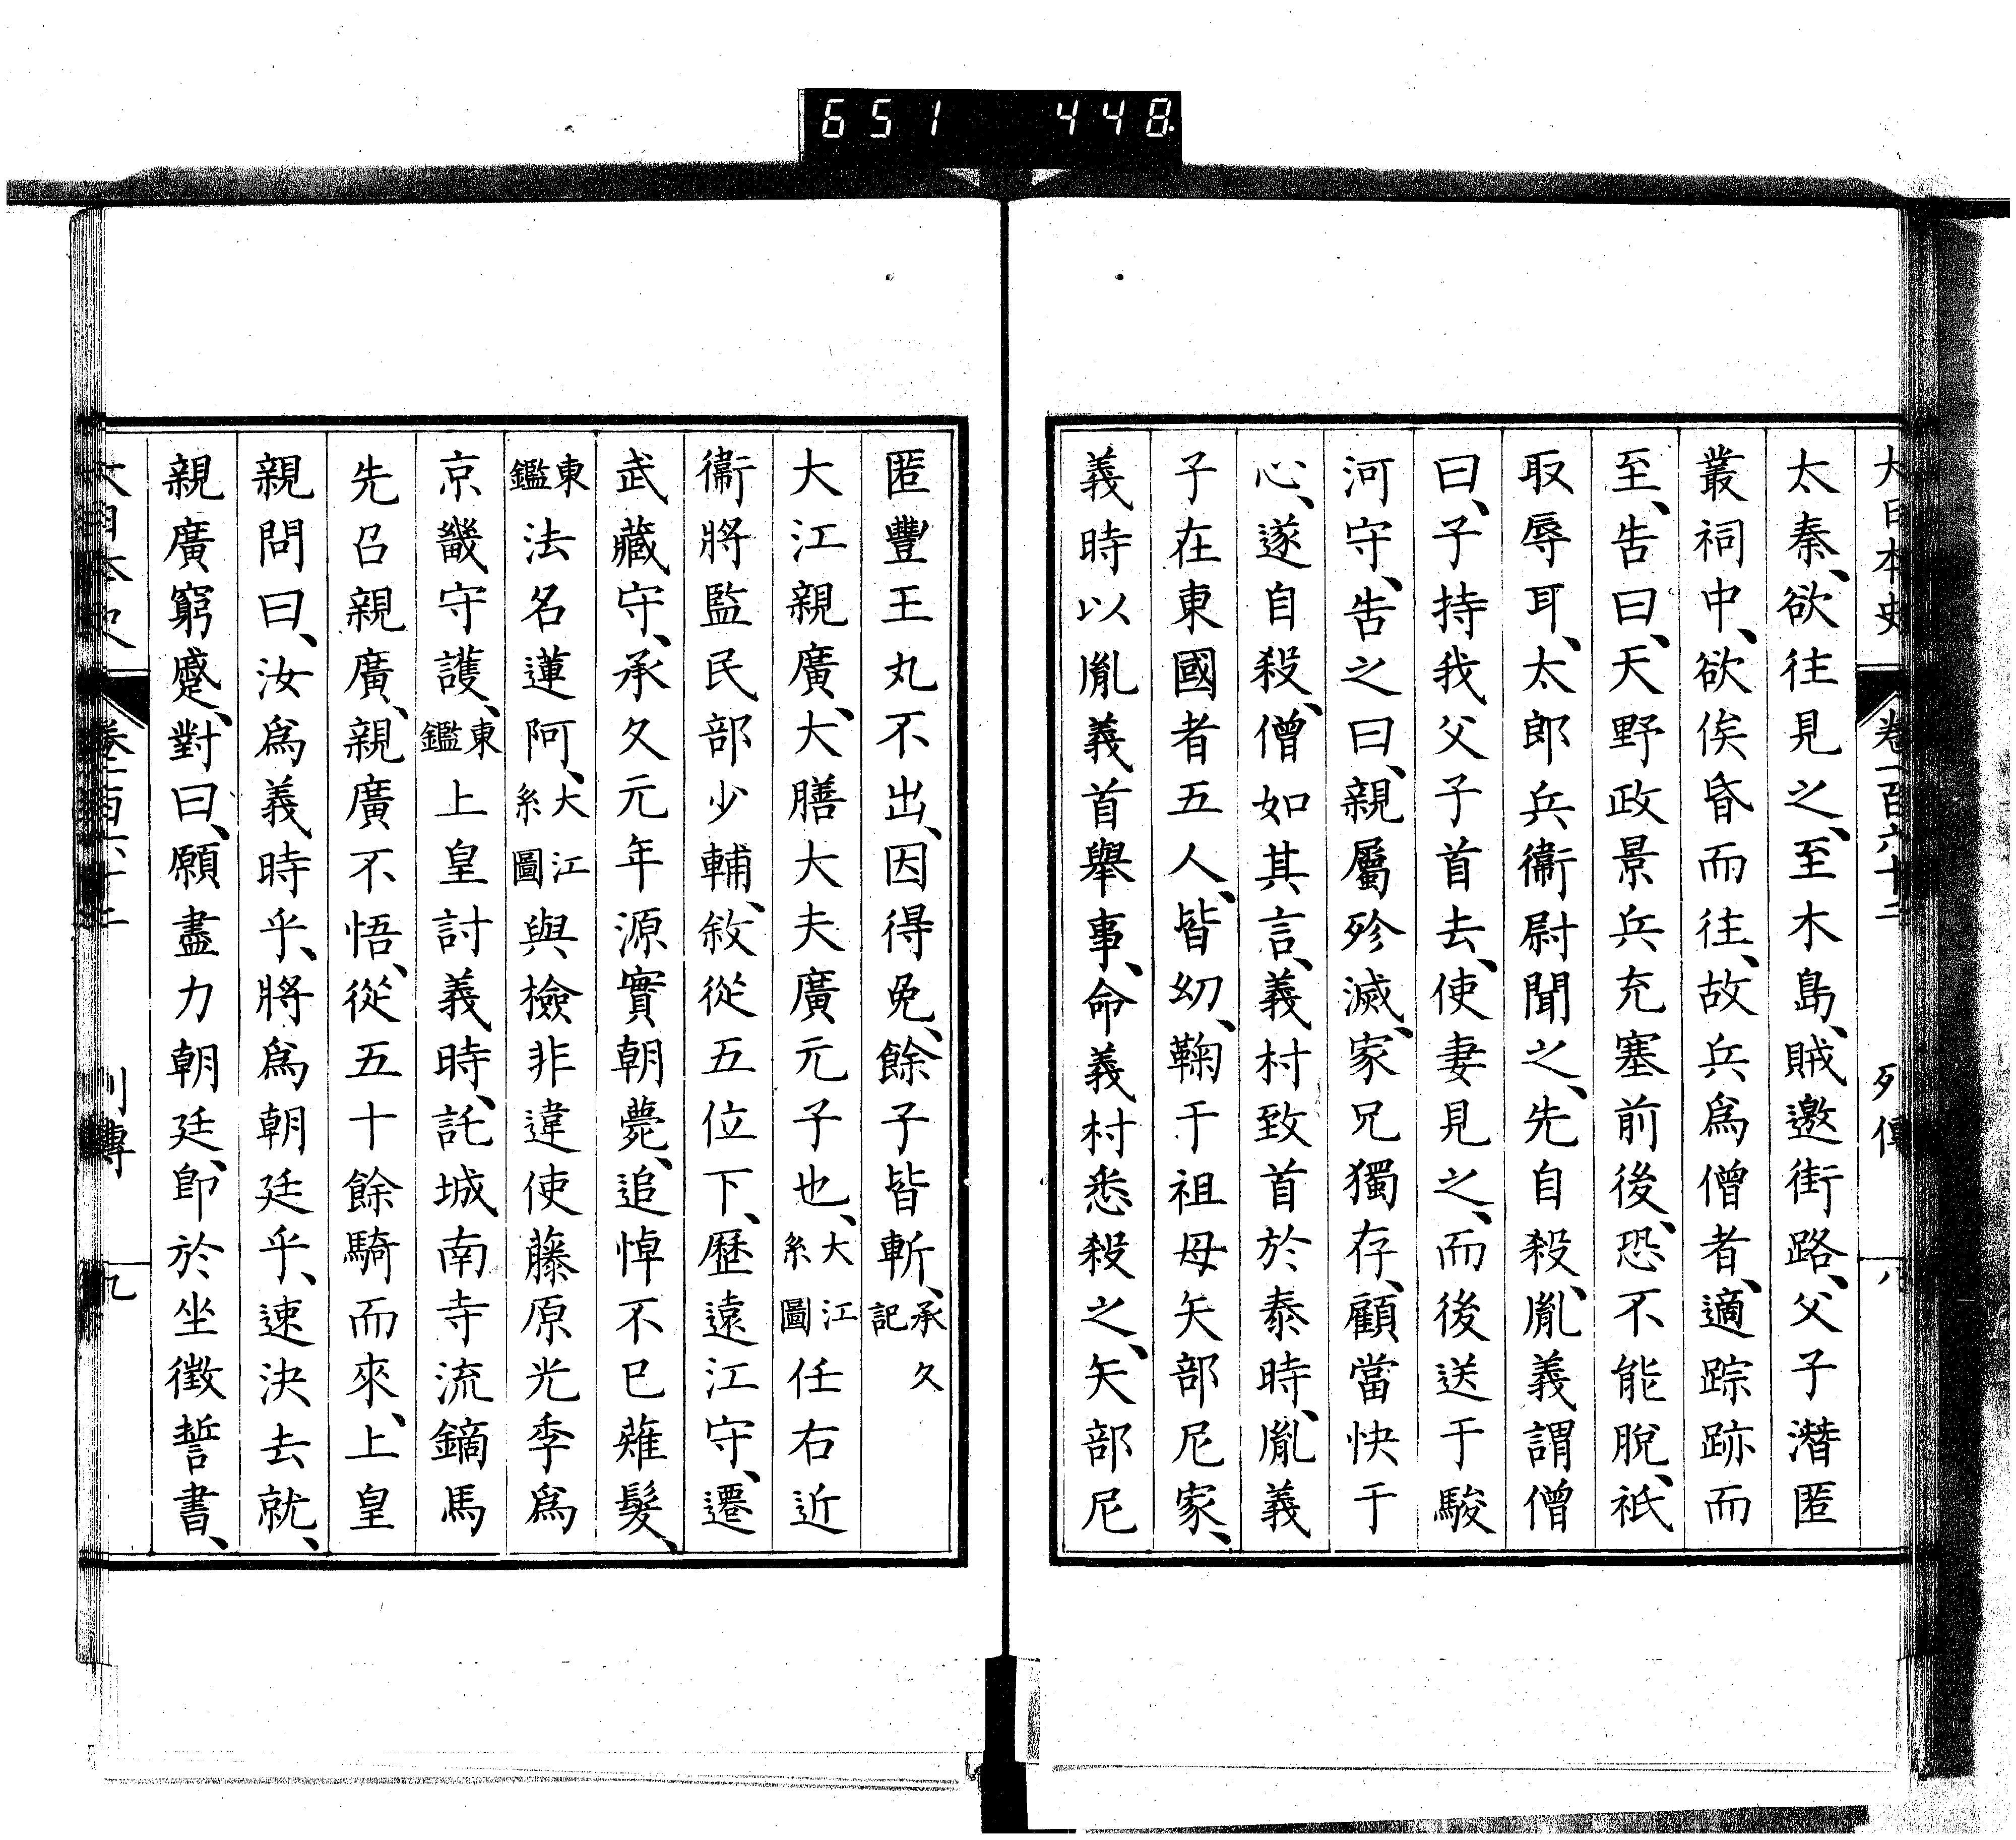 651 448
大日本史 卷一百六十二 列傳 八
太秦、欲往見之、至木島、賊邀街路、父子潛匿
叢祠中、欲俟昏而往、故兵爲僧者、適踪跡而
至、告曰、天野政景兵充塞前後、恐不能脫、祇
取辱耳、太郎兵衞尉聞之、先自殺、胤義謂僧
曰、子持我父子首去、使妻見之、而後送于駿
河守、告之曰、親屬殄滅、家兄獨存、顧當快于
心、遂自殺、僧如其言、義村致首於泰時、胤義
子在東國者五人、皆幼、鞠于祖母矢部尼家、
義時以胤義首舉事、命義村悉殺之、矢部尼
匿豐王丸不出、因得免、餘子皆斬、承久記
大江親廣、大膳大夫廣元子也、大江系圖任右近
衞將監民部少輔、敘從五位下、歷遠江守、遷
武藏守、承久元年源實朝薨、追悼不已薙髮、
東鑑法名蓮阿、大江系圖與檢非違使藤原光季爲
京畿守護、東鑑上皇討義時、託城南寺流鏑馬
先召親廣、親廣不悟、從五十餘騎而來、上皇
親問曰、汝爲義時乎、將爲朝廷乎、速決去就、
親廣窮蹙、對曰、願盡力朝廷、卽於坐徵誓書、
大日本史 卷一百六十二 列傳 九